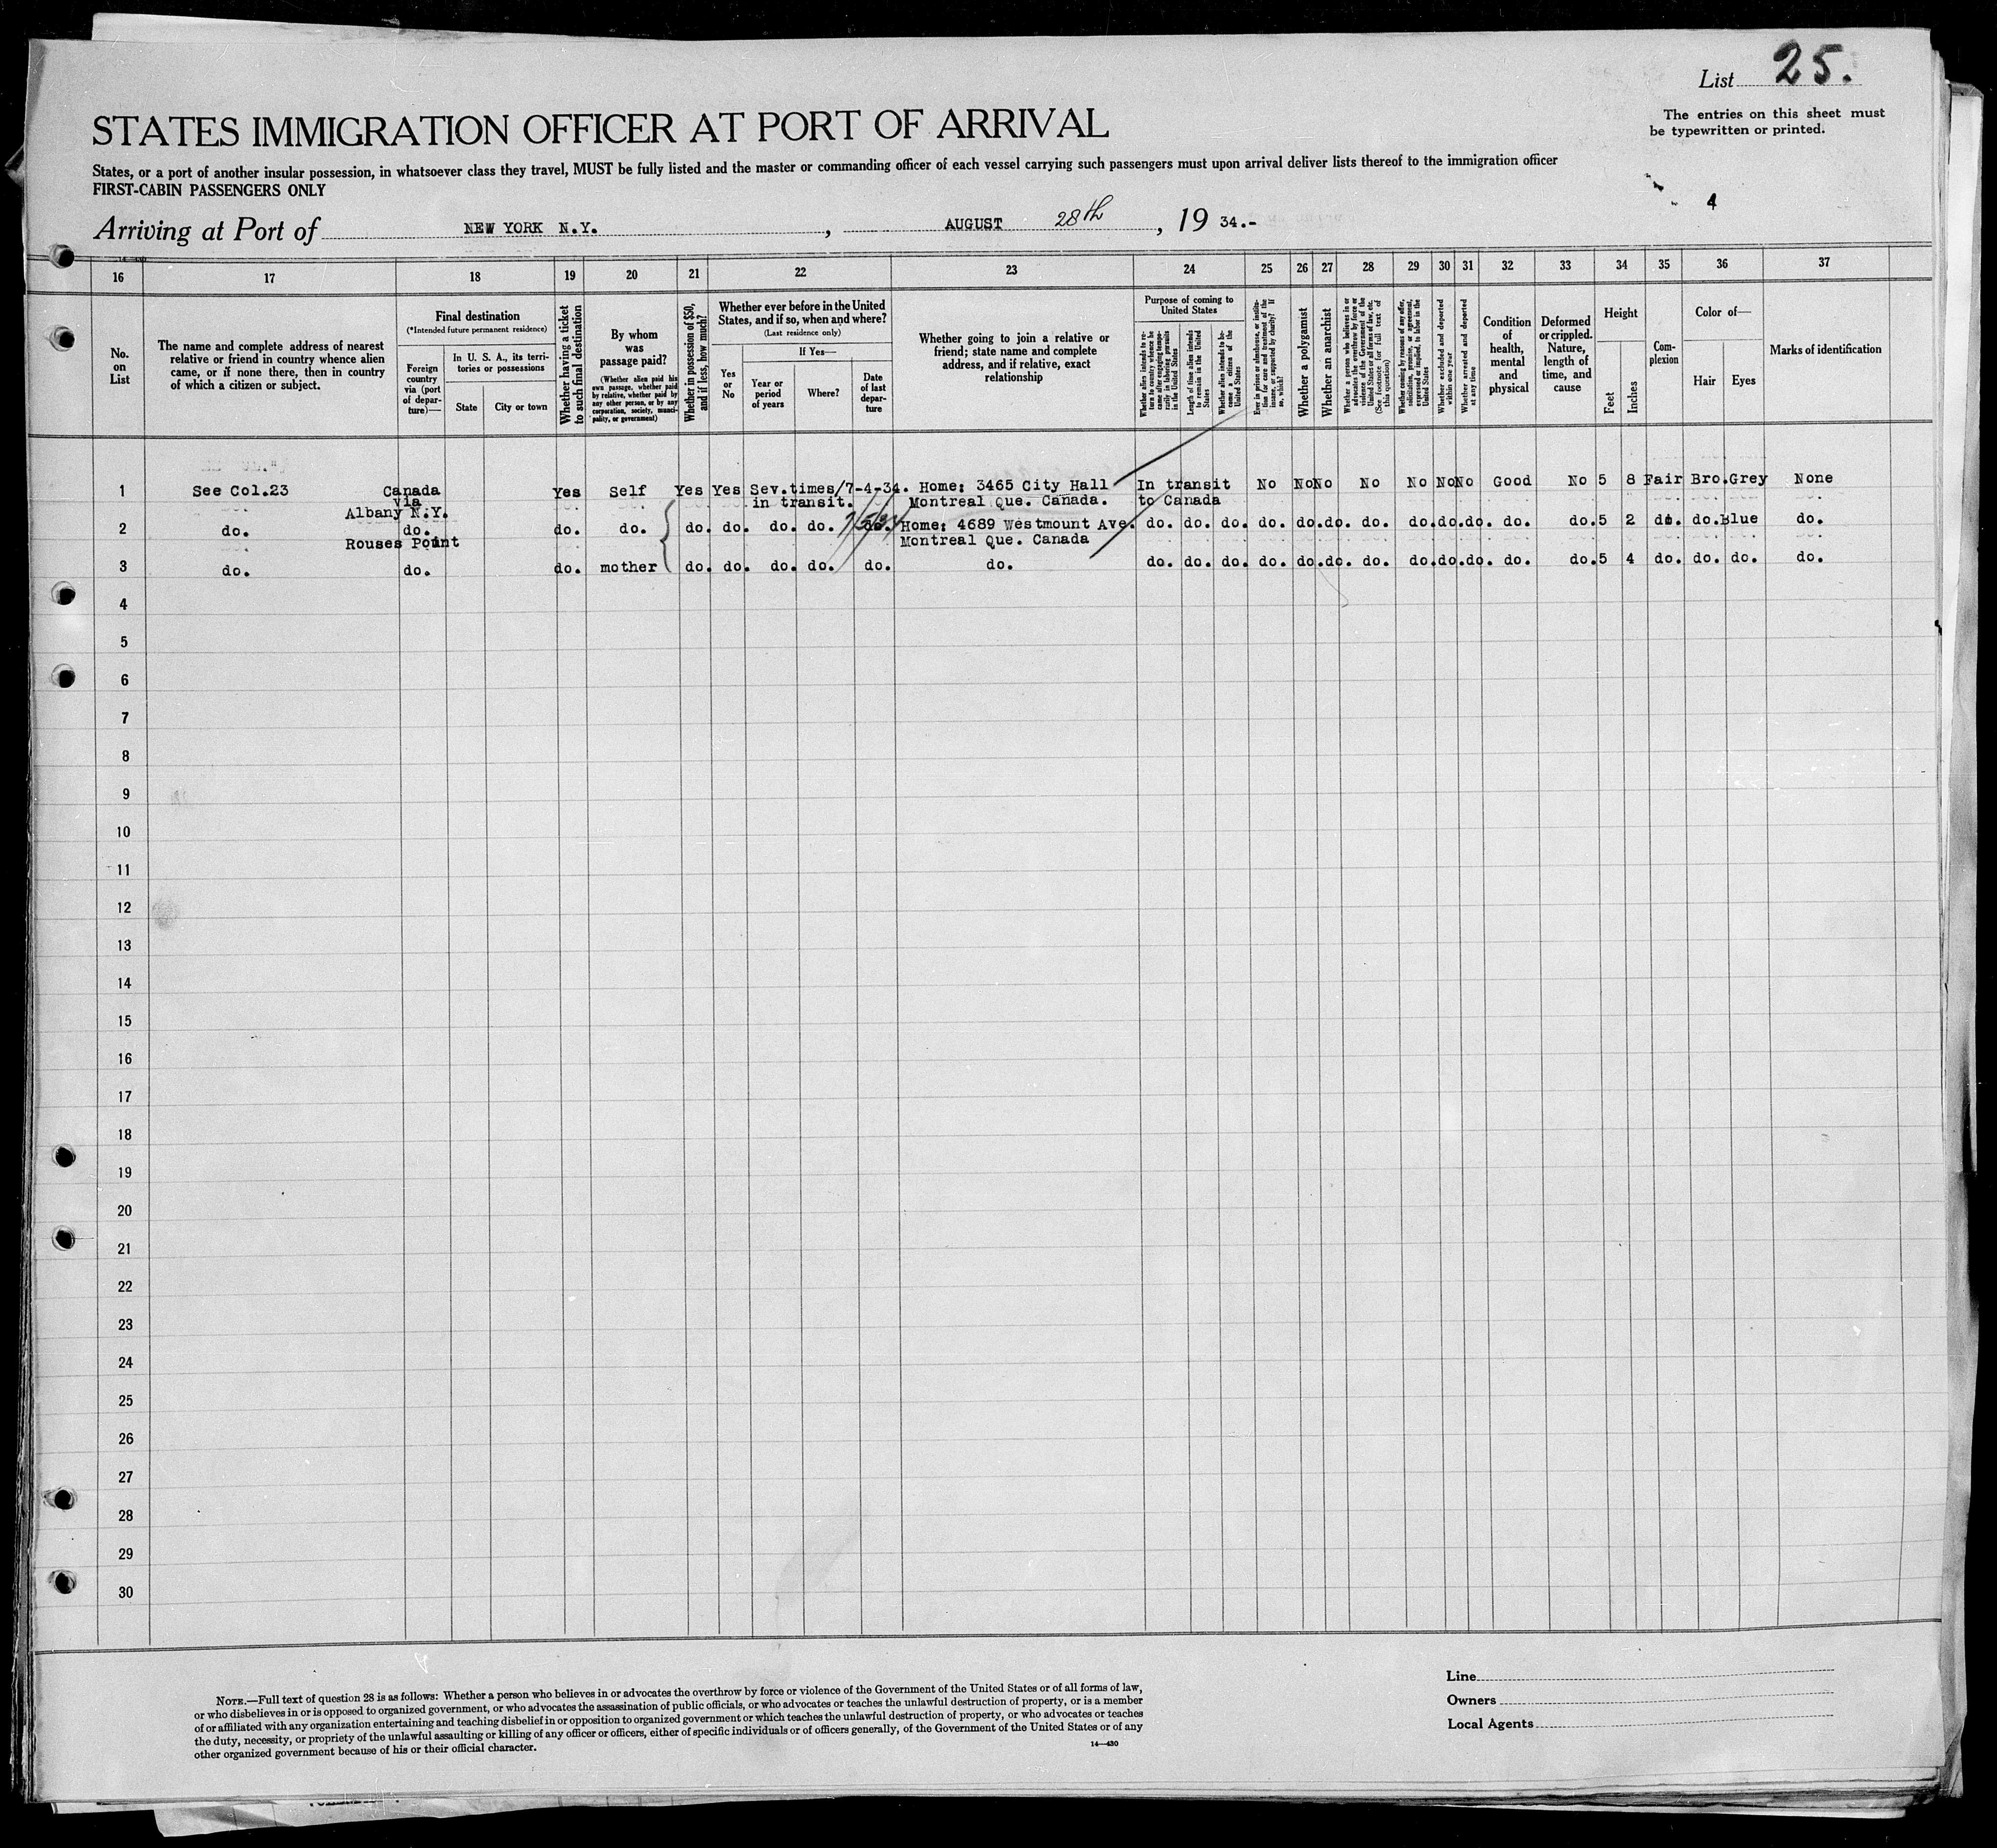 List 25.
The entries on this sheet must
be typewritten or printed.
STATES IMMIGRATION OFFICER AT PORT OF ARRIVAL
States, or a port of another insular possession, in whatsoever class they travel, MUST be fully listed and the master or commanding officer of each vessel carrying such passengers must upon arrival deliver lists thereof to the immigration officer
FIRST-CABIN PASSENGERS ONLY
4
Arriving at Port of NEW YORK N.Y. , AUGUST 28th , 19 34.-
16 17 18 19 20 21 22 23 24 25 26 27 28 29 30 31 32 33 34 35 36 37
No.
on
List
The name and complete address of nearest
relative or friend in country whence alien
came, or if none there, then in country
of which a citizen or subject.
Final destination
(*Intended future permanent residence)
Foreign
country
via (port
of depar-
ture)—
In U. S. A., its terri-
tories or possessions
State
City or town
Whether having a ticket
to such final destination
By whom
was
passage paid?
(Whether alien paid his
own passage, whether paid
by relative, whether paid by
any other person, or by any
corporation, society, munici-
pality, or government)
Whether in possession of $50,
and if less, how much?
Whether ever before in the United
States, and if so, when and where?
(Last residence only)
Yes
or
No
If Yes—
Year or
period
of years
Where?
Date
of last
depar-
ture
Whether going to join a relative or
friend; state name and complete
address, and if relative, exact
relationship
Purpose of coming to
United States
Whether alien intends to re-
turn to country whence he
came after engaging tempo-
rarily in laboring pursuits
in the United States
Length of time alien intends
to remain in the United
States
Whether alien intends to be-
come a citizen of the
United States
Ever in prison or almshouse, or institu-
tion for care and treatment of the
insane, or supported by charity? If
so, which?
Whether a polygamist
Whether an anarchist
Whether a person who believes in or
advocates the overthrow by force or
violence of the Government of the
United States or all forms of law, etc.
(See footnote for full text of
this question)
Whether coming by reason of any offer,
solicitation, promise, or agreement,
expressed or implied, to labor in the
United States
Whether excluded and deported
within one year
Whether arrested and deported
at any time
Condition
of
health,
mental
and
physical
Deformed
or crippled.
Nature,
length of
time, and
cause
Height
Feet
Inches
Com-
plexion
Color of—
Hair
Eyes
Marks of identification
1 See Col.23 Canada Yes Self Yes Yes Sev.times/7-4-34. Home: 3465 City Hall In transit No No No No No No No Good No 5 8 Fair Bro. Grey None
via in transit. Montreal Que. Canada. to Canada
Albany N.Y.
2 do. do. do. do. do. do. do. do. do. Home: 4689 Westmount Ave. do. do. do. do. do. do. do. do. do. do. do. do. 5 2 do. do. Blue do.
Rouses Point Montreal Que. Canada
3 do. do. do. mother do. do. do. do. do. do. do. do. do. do. do. do. do. do. do. do. do. do. 5 4 do. do. do. do.
4
5
6
7
8
9
10
11
12
13
14
15
16
17
18
19
20
21
22
23
24
25
26
27
28
29
30
NOTE.—Full text of question 28 is as follows: Whether a person who believes in or advocates the overthrow by force or violence of the Government of the United States or of all forms of law,
or who disbelieves in or is opposed to organized government, or who advocates the assassination of public officials, or who advocates or teaches the unlawful destruction of property, or is a member
of or affiliated with any organization entertaining and teaching disbelief in or opposition to organized government or which teaches the unlawful destruction of property, or who advocates or teaches
the duty, necessity, or propriety of the unlawful assaulting or killing of any officer or officers, either of specific individuals or of officers generally, of the Government of the United States or of any
other organized government because of his or their official character.
14—430
Line
Owners
Local Agents